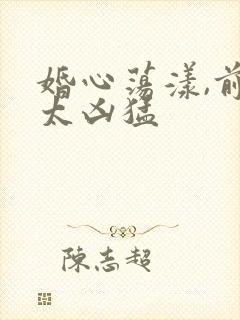 婚心荡漾,前
太凶猛
陈志超